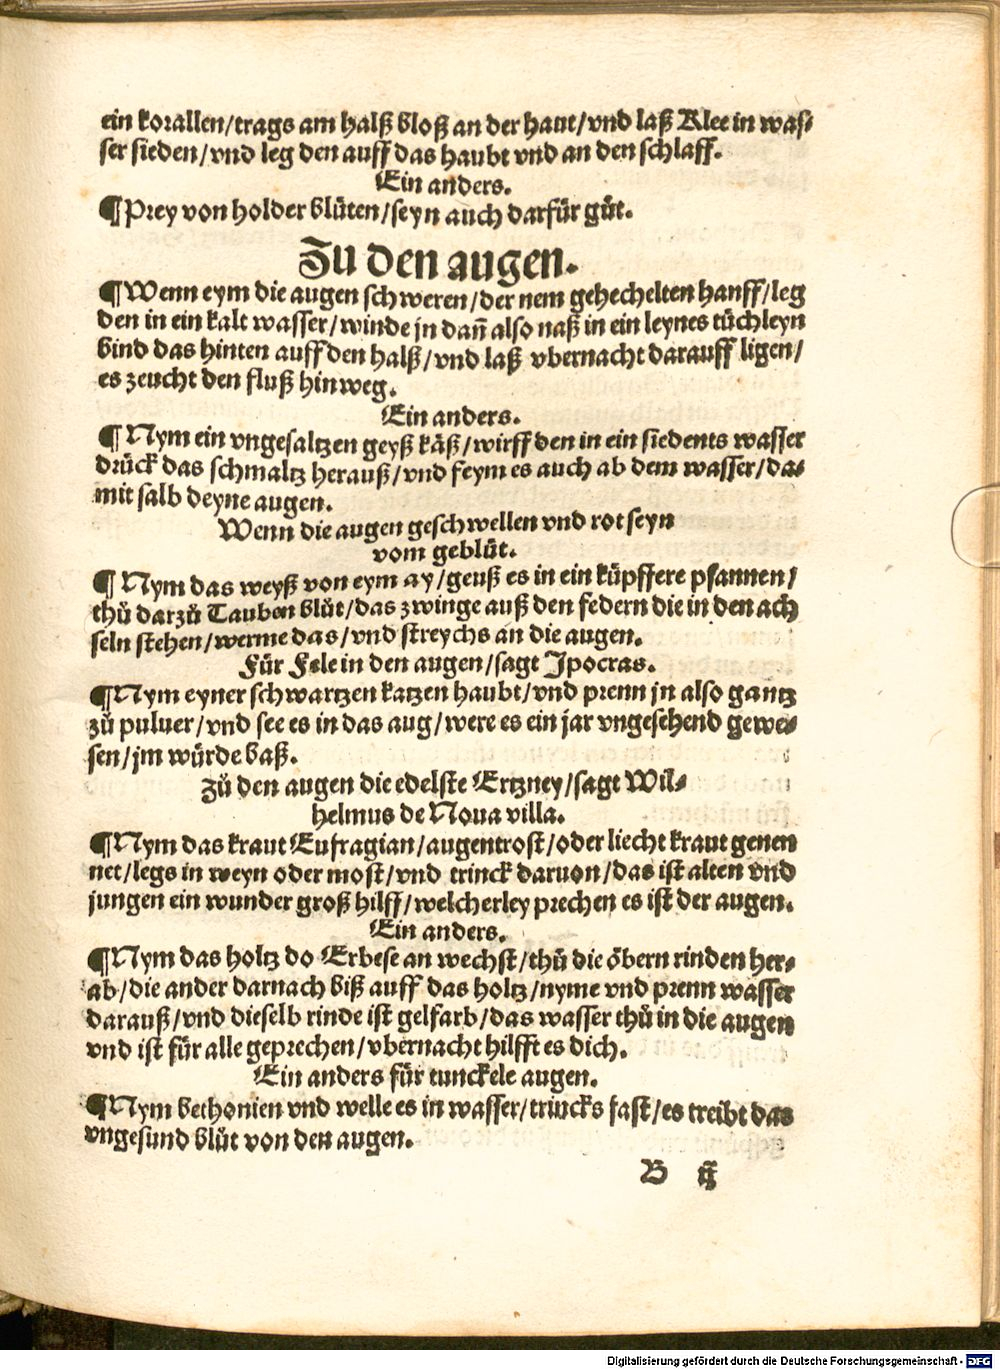 ein korallen/trags am halß bloß an der haut/vnd laß Klee in was⸗
ser sieden/vnd leg den auff das haubt vnd an den schlaff.
Ein anders.
¶Prey von holder blüten/seyn auch darfür gůt.
Zu den augen.
¶Wenn eym die augen schweren/der nem gehechelten hanff/leg
den in ein kalt wasser/winde jn dañ also naß in ein leynes tüchleyn
bind das hinten auff den halß/vnd laß vbernacht darauff ligen/
es zeucht den fluß hinweg.
Ein anders.
¶Nym ein vngesaltzen geyß käß/wirff den in ein siedents wasser
drück das schmaltz herauß/vnd feym es auch ab dem wasser/da⸗
mit salb deyne augen.
Wenn die augen geschwellen vnd rot seyn
vom geblüt.
¶Nym das weyß von eym ay/geuß es in ein küpffere pfannen/
thů darzů Tauben blůt/das zwinge auß den federn die in den ach
seln stehen/werme das/vnd streychs an die augen.
Für Fele in den augen/sagt Ipocras.
¶Nym eyner schwartzen katzen haubt/vnd prenn jn also gantz
zů puluer/vnd see es in das aug/were es ein jar vngesehend gewe⸗
sen/jm würde baß.
Zů den augen die edelste Ertzney/sagt Wil⸗
helmus de Noua villa.
¶Nym das kraut Eufragian/augentrost/oder liecht kraut genen
net/legs in weyn oder most/vnd trinck daruon/das ist alten vnd
jungen ein wunder groß hilff/welcherley prechen es ist der augen.
Ein anders.
¶Nym das holtz do Erbese an wechst/thů die öbern rinden her⸗
ab/die ander darnach biß auff das holtz/nyme vnd prenn wasser
darauß/vnd dieselb rinde ist gelfarb/das wasser thů in die augen
vnd ist für alle geprechen/vbernacht hilfft es dich.
Ein anders für tunckele augen.
¶Nym bethonien vnd welle es in wasser/trincks fast/es treibt das
vngesund blůt von den augen.
B ij
Digitalisierung gefördert durch die Deutsche Forschungsgemeinschaft - DFG